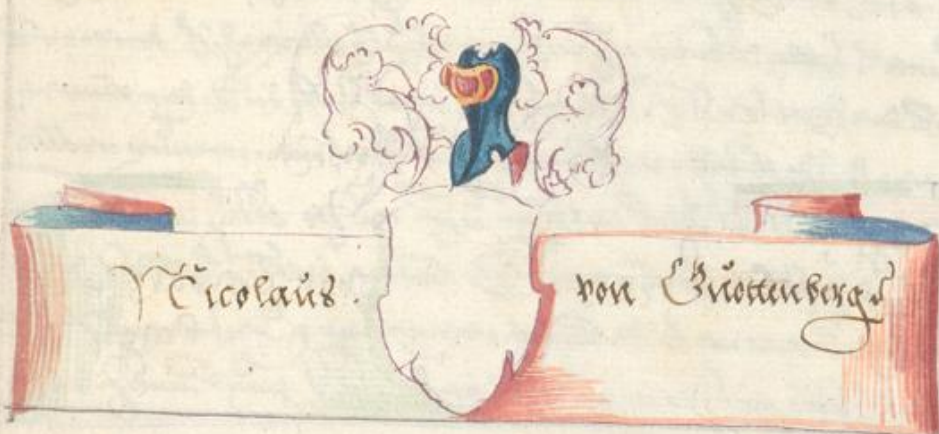 Nicolaus. von Guottenberg